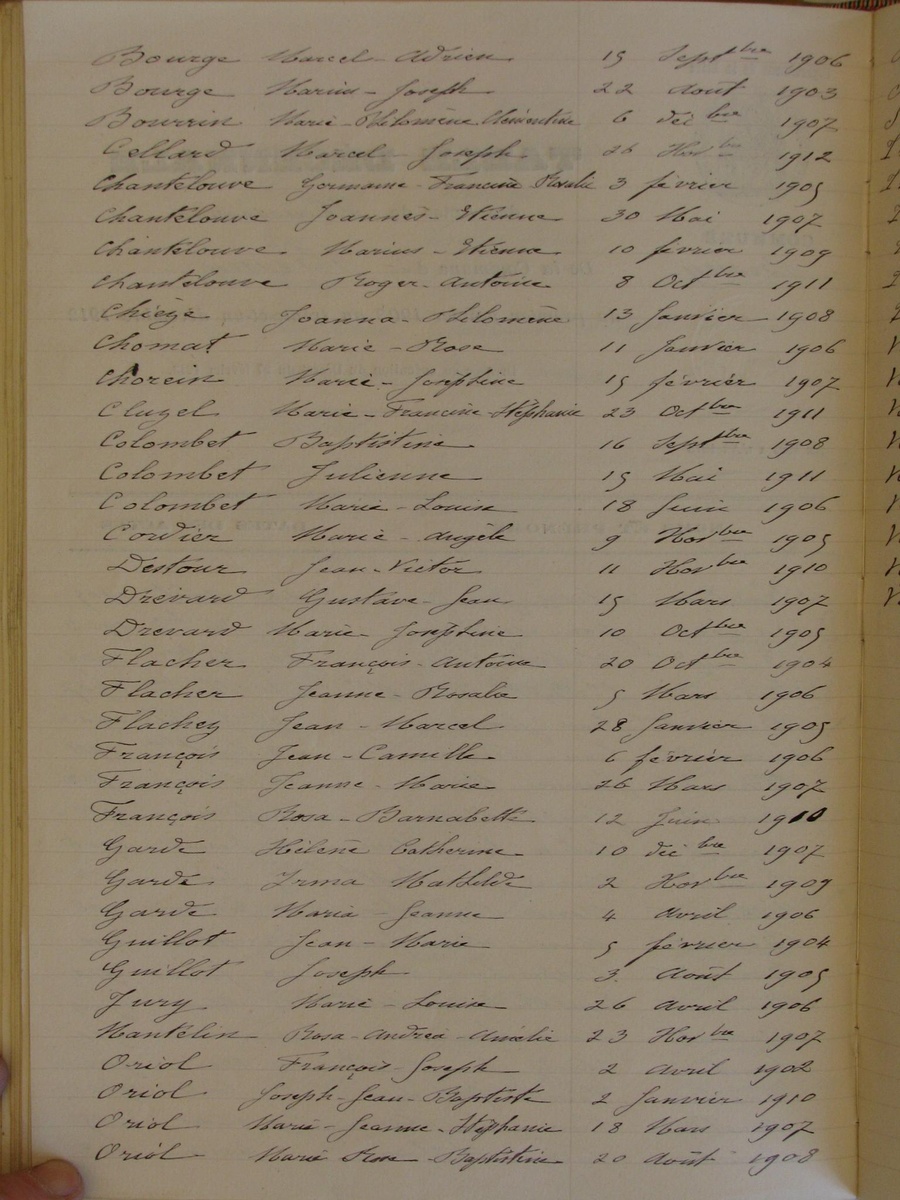 Bourge Marcel - Adrien 15 Sept bre 1906
Bourge Marius - Joseph 22 Août 1903
Bourrin Marie - Philomène Clémentine 6 Déc bre 1907
Cellard Marcel - Joseph 26 Nov bre 1912
Chantelouve Germaine - Francine Rosalie 3 février 1905
Chantelouve Joannès - Etienne 30 Mai 1907
Chantélouve Marius - Etienne 10 février 1909
Chantelouve Roger - Antoine 8 Oct bre 1911
Chièze Joanna - Philomène 13 Janvier 1908
Chomat Marie - Rose 11 Janvier 1906
Chorein Marie - Joséphine 15 février 1907
Cluzel Marie - Francine - Stéphanie 23 Oct bre 1911
Colombet Baptistine 16 Sept bre 1908
Colombet Julienne 15 Mai 1911
Colombet Marie - Louise 18 Juin 1906
Cordier Marie - Angèle 9 Nov bre 1905
Destour Jean - Victor 11 Nov bre 1910
Drevard Gustave - Jean 15 Mars 1907
Drevard Marie - Joséphine 10 Oct bre 1905
Flacher François - Antoine 20 Oct bre 1904
Flacher Jeanne - Rosalie 5 Mars 1906
Flachey Jean - Marcel 28 Janvier 1905
François Jean - Camille 6 février 1906
François Jeanne - Marie 26 Mars 1907
François Rosa - Barnabette 12 Juin 1910
Garde Hélène Catherine 10 Déc bre 1907
Garde Irma Mathilde 2 Nov bre 1909
Garde Maria - Jeanne 4 Avril 1906
Guillot Jean - Marie 5 février 1904
Guillot Joseph 3 Août 1905
Jury Marie - Louise 26 Avril 1906
Mantélin Rosa - Andréa - Amélie 23 Nov bre 1907
Oriol François - Joseph 2 Avril 1902
Oriol Joseph - Jean - Baptiste 2 Janvier 1910
Oriol Marie - Jeanne - Stéphanie 18 Mars 1907
Oriol Marie Rose - Baptistine 20 Août 1908